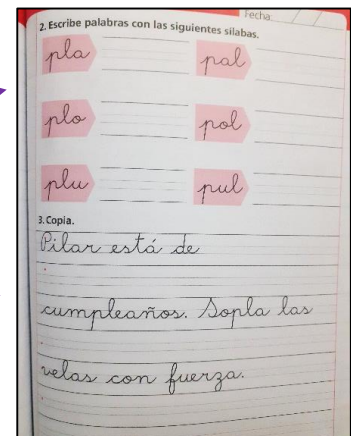 Fecha: / /
2. Escribe palabras con las siguientes sílabas.
pla pal
plo pol
plu pul
3. Copia.
Pilar está de
cumpleaños. Sopla las
velas con fuerza.